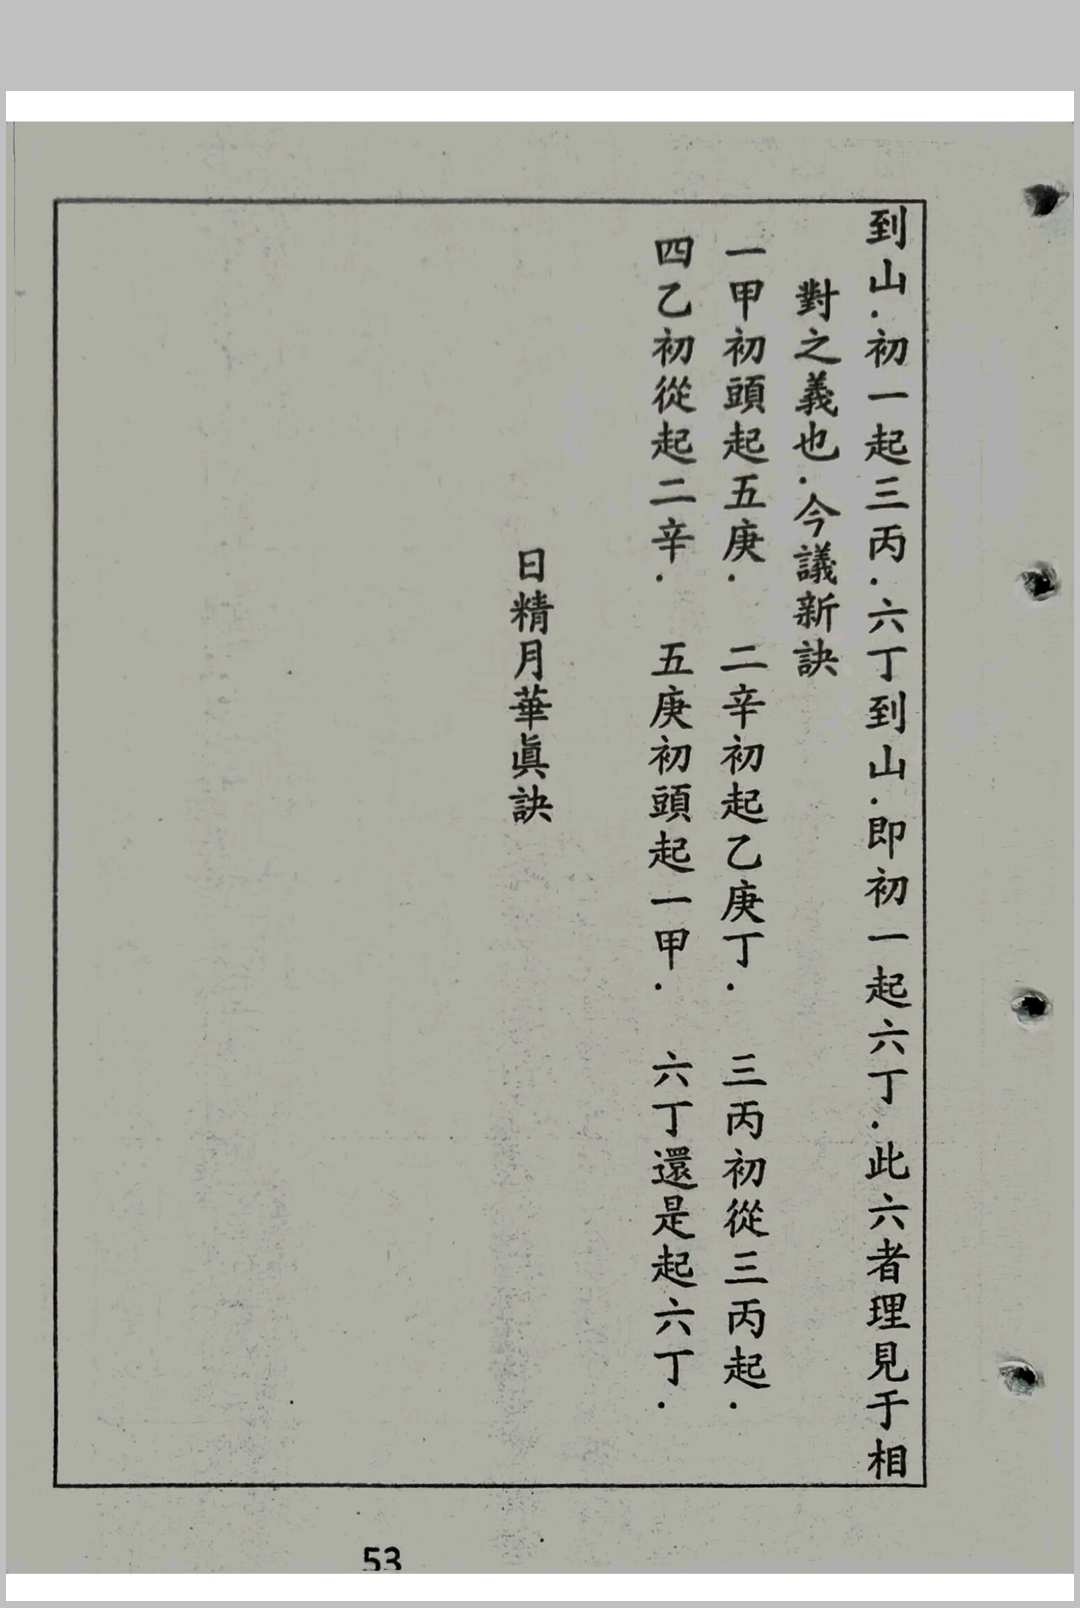 到山．初一起三丙．六丁到山．即初一起六丁．此六者理見于相
對之義也．今議新訣
一甲初頭起五庚．　二辛初起乙庚丁．　三丙初從三丙起．
四乙初從起二辛．　五庚初頭起一甲．　六丁還是起六丁．
日精月華眞訣
53